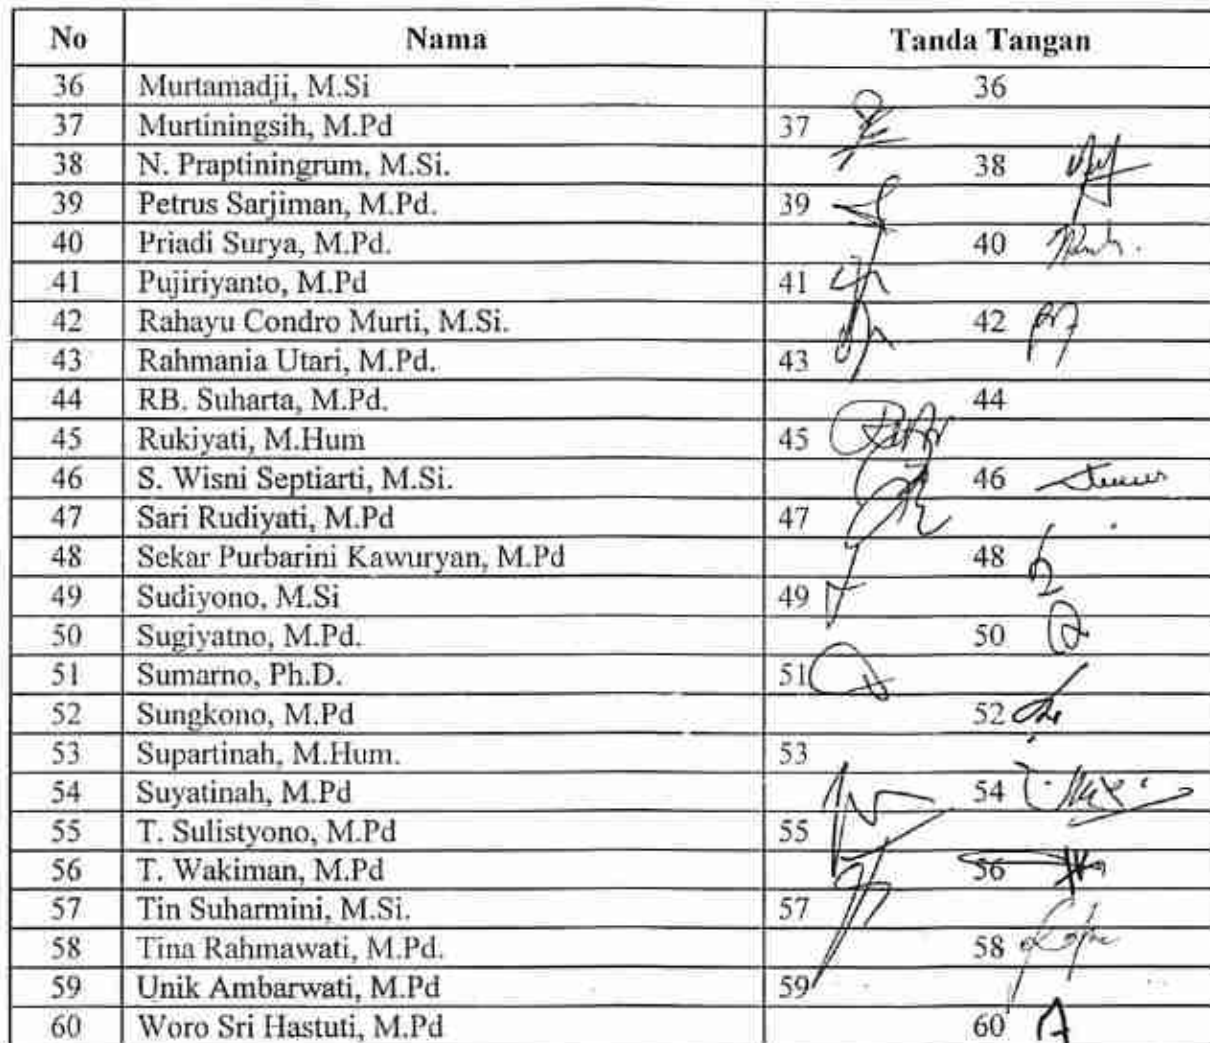 No Nama Tanda Tangan
36 Murtamadji, M.Si 36
37 Murtiningsih, M.Pd 37
38 N. Praptiningrum, M.Si. 38
39 Petrus Sarjiman, M.Pd. 39
40 Priadi Surya, M.Pd. 40
41 Pujiriyanto, M.Pd 41
42 Rahayu Condro Murti, M.Si. 42
43 Rahmania Utari, M.Pd. 43
44 RB. Suharta, M.Pd. 44
45 Rukiyati, M.Hum 45
46 S. Wisni Septiarti, M.Si. 46
47 Sari Rudiyati, M.Pd 47
48 Sekar Purbarini Kawuryan, M.Pd 48
49 Sudiyono, M.Si 49
50 Sugiyatno, M.Pd. 50
51 Sumarno, Ph.D. 51
52 Sungkono, M.Pd 52
53 Supartinah, M.Hum. 53
54 Suyatinah, M.Pd 54
55 T. Sulistyono, M.Pd 55
56 T. Wakiman, M.Pd 56
57 Tin Suharmini, M.Si. 57
58 Tina Rahmawati, M.Pd. 58
59 Unik Ambarwati, M.Pd 59
60 Woro Sri Hastuti, M.Pd 60